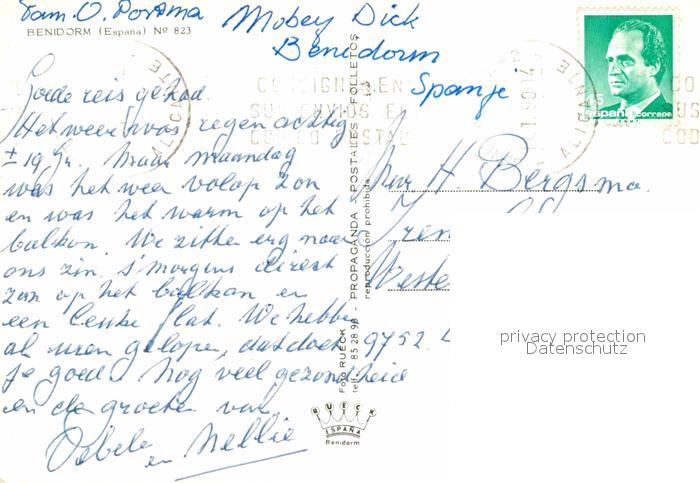 Fam. O. Postma
BENIDORM (España) Nº 823
Mobey Dick
Benidorm
Spanje
Goede reis gehad.
Het weer was regenachtig
± 19 gr. Maar maandag
was het weer volop zon
en was het warm op het
balkon. We zitten erg naar
ons zin. s'morgens direct
zon op het balkon en
een leuke flat. We hebben
al uren gelopen, dat doet
je goed. Nog veel gezondheid
en de groeten van
Oebele
en Nellie
Foto RUECK - PROPAGANDA POSTALES FOLLETOS
telf. 85 28 98
reproducción prohibida
RUECK
ESPAÑA
Benidorm
CONSIGNE EN
SUS ENVIOS EL
CODIGO POSTAL
ALICANTE
España correos
ALICANTE
CO
SUS
COD
H. Bergsma.
9752
privacy protection
Datenschutz